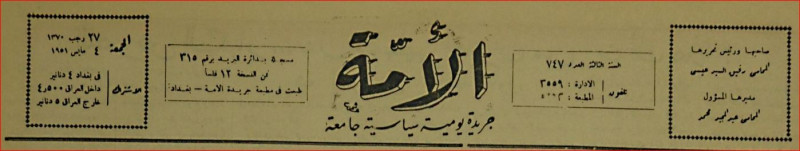 صاحبها ورئيس تحريرها
المحامي رفيق السيد عيسى
مديرها المسؤول
المحامي عبد المجيد محمد
السنة الثالثة العدد ٧٤٧
تلفون
الادارة : ٣٥٥٩
المطبعة :
الأمّة
جريدة يومية سياسية جامعة
مسجلة بدائرة البريد برقم ٣١٥
ثمن النسخة ١٢ فلساً
طبعت في مطبعة جريدة الامة - بغداد
الجمعة
٢٧ رجب ١٣٧٠
٤ مايس ١٩٥١
الاشتراك
في بغداد ٤ دنانير
داخل العراق ٤,٥٠٠
خارج العراق ٥ دنانير